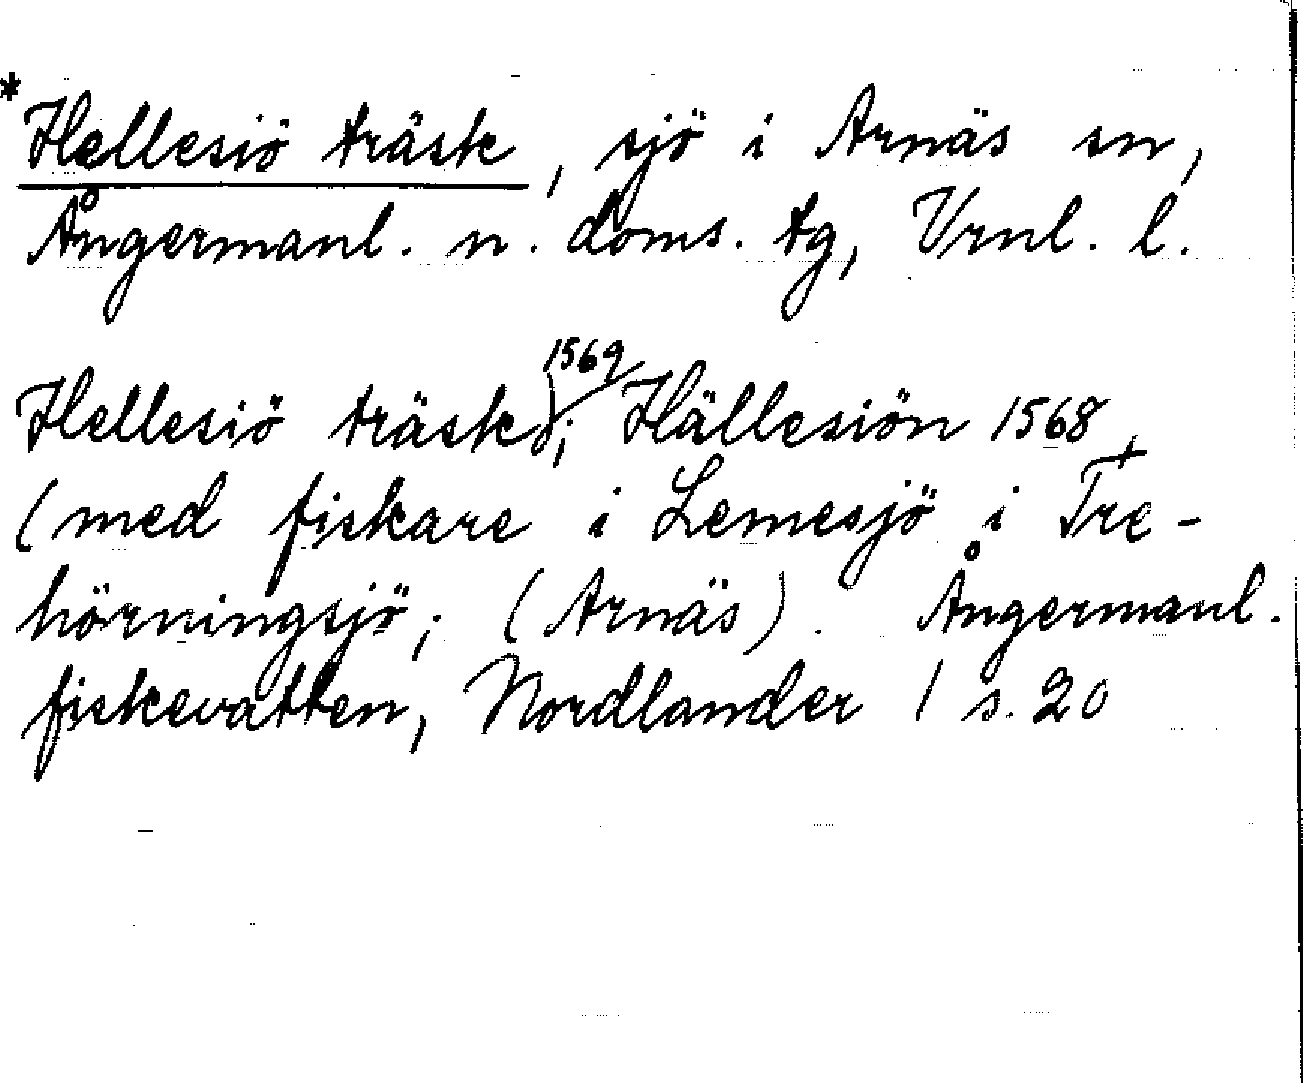 *Hellesiö träsk, sjö i Arnäs sn,
Ångermanl. n. doms. tg, Vrnl. l.
Hellesiö träsk 1569; Hällesiön 1568,
(med fiskare i Lemesjö i Tre-
hörningsjö; (Arnäs). Ångermanl.
fiskevatten, Nordlander 1 s. 20